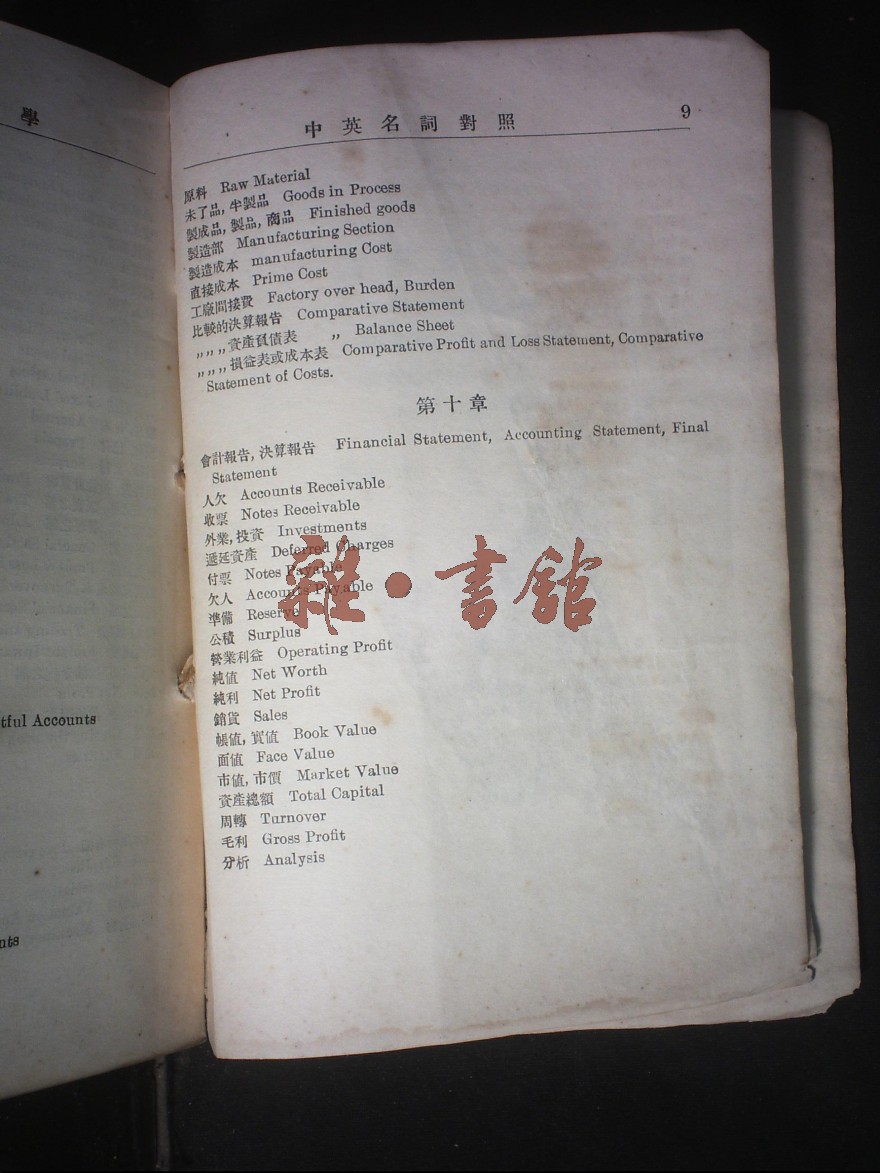 學
中英名詞對照 9
原料 Raw Material
未了品,半製品 Goods in Process
製成品,製品,商品 Finished goods
製造部 Manufacturing Section
製造成本 manufacturing Cost
直接成本 Prime Cost
工廠間接費 Factory over head, Burden
比較的決算報告 Comparative Statement
〃〃〃資產負債表 〃 Balance Sheet
〃〃〃損益表或成本表 Comparative Profit and Loss Statement, Comparative
Statement of Costs.
第十章
會計報告,決算報告 Financial Statement, Accounting Statement, Final
Statement
人欠 Accounts Receivable
收票 Notes Receivable
外業,投資 Investments
遞延資產 Deferred Charges
付票 Notes Payable
欠人 Accounts Payable
準備 Reserve
公積 Surplus
營業利益 Operating Profit
純值 Net Worth
純利 Net Profit
銷貨 Sales
帳值,實值 Book Value
面值 Face Value
市值,市價 Market Value
資產總額 Total Capital
周轉 Turnover
毛利 Gross Profit
分析 Analysis
tful Accounts
nts
雜·書館